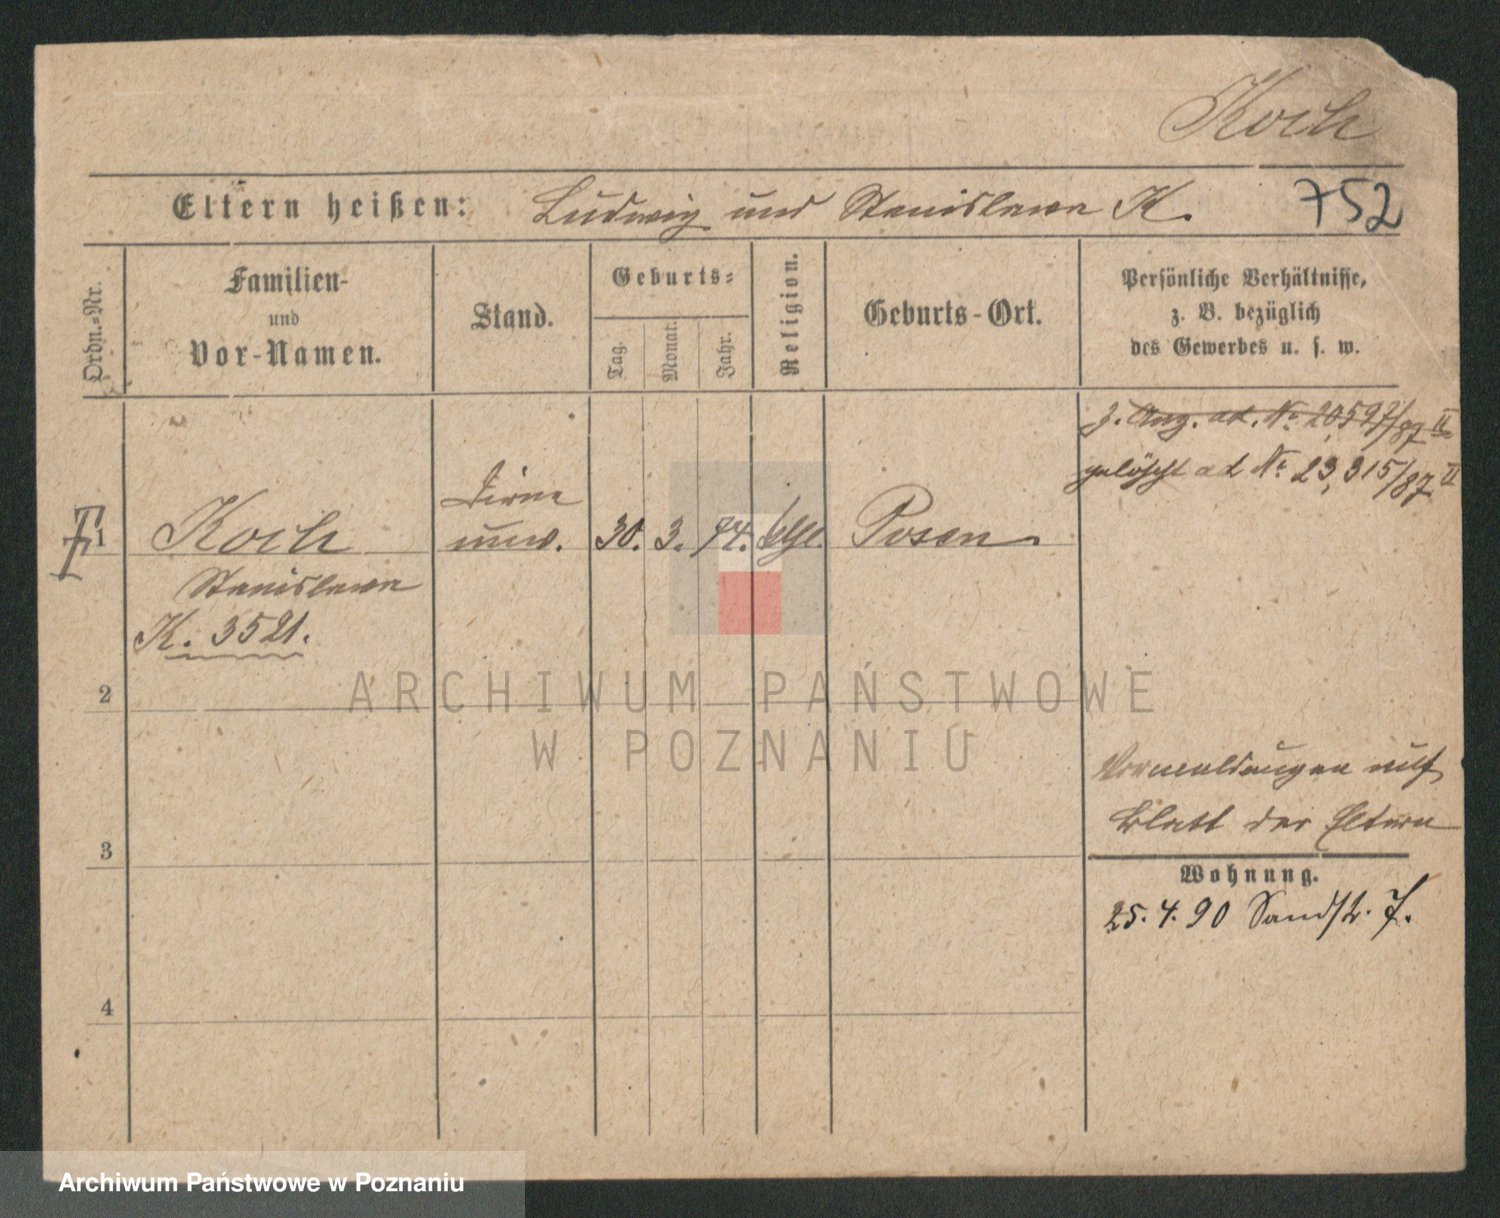 Koch
Eltern heißen: Ludwig und Stanislawa K. 752
Ordn.-Nr.
Familien-
und
Vor-Namen.
Stand.
Geburts-
Tag.
Monat.
Jahr.
Religion.
Geburts-Ort.
Persönliche Verhältnisse,
z. B. bezüglich
des Gewerbes u. s. w.
z. Ang. ad. No 20,597/87 II
gelöscht ad No 23,315/87 II
1 Koch Dirne
unv. 30. 3. 74. Posen
Stanislawa
K. 3521.
2
ARCHIWUM PAŃSTWOWE
W POZNANIU
Vormeldungen auf
Blatt der Eltern
3
Wohnung.
25.4.90 Sandstr. 7.
4
Archiwum Państwowe w Poznaniu